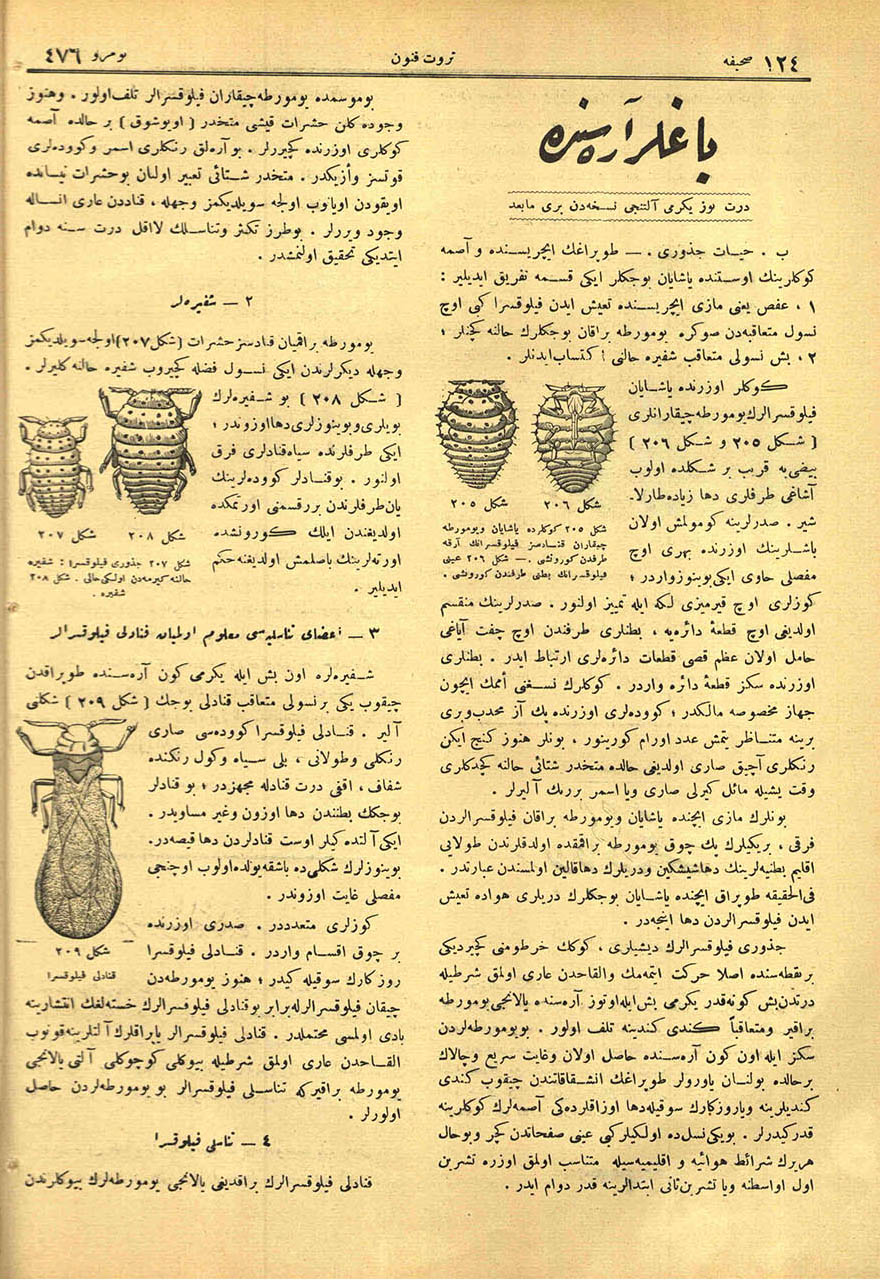 صحیفه ١٢٤
ثروت فنون
نومرو ٤٧٦
باغلر آره سنده
درت یوز یكرمی آلتنجی نسخه‌دن بری مابعد
ب . حیات جذوری . — طوپراغك ایچریسنده و آصمه
كوكلرینك اوستنده یاشایان بوجكلر ایكی قسمه تفریق ایدیلیر :
١ ، عفص یعنی مازی ایچریسنده تعیش ایدن فیلوقسرا كبی اوچ
نسول متعاقبه‌دن صوكره یومورطه براقان بوجكلرك حالنه كچنلر ؛
٢ ، بش نسولی متعاقب شفیره حالنی اكتساب ایدنلر .
كوكلر اوزرنده یاشایان
فیلوقسرالرك یومورطه چیقارانلری
( شكل ٢٠٥ و شكل ٢٠٦ )
بیضی‌یه قریب بر شكلده اولوب
آشاغی طرفلری دها زیاده طارلا-
شیر . صدرلرینه كومولمش اولان
باشلرینك اوزرنده بهری اوچ
مفصلی حاوی ایكی بوینوز واردر ؛
شكل ٢٠٦
شكل ٢٠٥
شكل ٢٠٥ كوكلرده یاشایان ویومورطه
چیقاران قنادسز فیلوقسرانك آرقه
طرفدن كورونشی . — شكل ٢٠٦ عینی
فیلوقسرانك بطنی طرفندن كورونشی .
كوزلری اوچ قیرمیزی لكه ایله تمییز اولنور . صدرلرینك منقسم
اولدیغی اوچ قطعهٔ دائره‌یه ، بطنلری طرفندن اوچ چفت آیاغی
حامل اولان عظم قصی قطعات دائره‌لری ارتباط ایدر . بطنلری
اوزرنده سكز قطعهٔ دائره واردر . كوكلرك نسغنی أممك ایچون
جهاز مخصوصه مالكدر ؛ كووده‌لری اوزرنده پك آز محدب‌و‌بری
برینه متناظر یتمش عدد اورام كورینور ، بونلر هنوز كنج ایكن
رنكلری آچیق صاری اولدیغی حالده متخدر شتائی حالنه كچدكلری
وقت یشیله مائل كیرلی صاری ویا اسمر بررنك آلیرلر .
بونلرك مازی ایچنده یاشایان ویومورطه براقان فیلوقسرالردن
فرقی ، بریكیلرك پك چوق یومورطه براقمقده اولدقلرندن طولایی
اقلیم بطنیه‌لرینك دهاشیشكین ودریلرك دهاقالین اولمسندن عبارتدر .
فی‌الحقیقه طوپراق ایچنده یاشایان بوجكلرك دریلری هواده تعیش
ایدن فیلوقسرالردن دها اینجه‌در .
جذوری فیلوقسرالرك دیشیلری ، كوكك خرطومنی كچیردیكی
برنقطه‌سنده اصلا حركت ایتمه‌مك والقاحدن عاری اولمق شرطیله
درتدن‌بش كونه‌قدر یكرمی بش‌ایله‌اوتوز آره‌سنده یالانجی‌یومورطه
براقیر ومتعاقباً كندی كندینه تلف اولور . بویومورطه‌لردن
سكز ایله اون كون آره‌سنده حاصل اولان وغایت سریع وچالاك
برحالده بولنان یاورولر طوپراغك انشقاقاتندن چیقوب كندی
كندیلرینه ویاروزكارك سوقیله‌دها اوزاقلرده‌كی آصمه‌لرك كوكلرینه
قدركیدرلر . بویكی‌نسل‌ده اولكیلركبی عینی صفحاتدن كچر وبوحال
هریرك شرائط هوائیه و اقلیمیه‌سیله متناسب اولمق اوزره تشرین
اول اواسطنه ویا تشرین‌ثانی ابتدالرینه قدر دوام ایدر .
بوموسمده یومورطه چیقاران فیلوقسرالر تلف اولور . وهنوز
وجوده كلن حشرات قیشی متخدر ( اویوشوق ) بر حالده آصمه
كوكلری اوزرنده كچیرلر . بو آره‌لق رنكلری اسمر وكووده‌لری
قوتسز وأزیكدر . متخدر شتائی تعبیر اولنان بوحشرات نیسانده
اویقودن اویانوب اولجه سویلدیكمز وجهله ، قناددن عاری انساله
وجود ویررلر . بوطرز تكثر وتناسلك لااقل درت سنه دوام
ایتدیكی تحقیق اولنمشدر .
٢ — شفیره‌لر
یومورطه براقیان قنادسز حشرات ( شكل ٢٠٧ ) اولجه‌سویلدیكمز
وجهله دیكرلرندن ایكی نسول فضله كچیروب شفیره حالنه كلیرلر .
( شكل ٢٠٨ ) بو شفیره‌لرك
بویلری‌وبوینوزلری دهااوزوندر ؛
ایكی طرفلرنده سیاه قنادلری فرق
اولنور . بوقنادلر كووده‌لرینك
یان طرفلرندن بررقسمنی اورتمكده
اولدیغندن ایلك كورونشده
اورته‌لرینك باصلمش اولدیغنه‌حكم
ایدیلیر .
شكل ٢٠٨
شكل ٢٠٧
شكل ٢٠٧ جذوری فیلوقسرا : شفیره
حالنه كیرمه‌دن اولكی حالی . شكل ٢٠٨
شفیره .
٣ — اعضای تناسلیه‌سی معلوم اولمیان قنادلی فیلوقسرالر
شفیره‌لره اون بش ایله یكرمی كون آره‌سنده طوپراقدن
چیقوب یكی برنسولی متعاقب قنادلی بوجك ( شكل ٢٠٩ ) شكلنی
آلیر . قنادلی فیلوقسرا كووده‌سی صاری
رنكلی وطولانی ، بلی سیاه وكول رنكنده
شفاف ، افقی درت قنادله مجهزدر ؛ بو قنادلر
بوجكك بطنندن دها اوزون وغیر مساویدر .
ایكی‌آلنده كیلر اوست قنادلردن دها قیصه‌در .
بوینوزلرك شكلی‌ده باشقه‌یولده‌اولوب اوچنجی
مفصلی غایت اوزوندر .
كوزلری متعدددر . صدری اوزرنده
بر چوق اقسام واردر . قنادلی فیلوقسرا
روزكارك سوقیله كیدر ؛ هنوز یومورطه‌دن
شكل ٢٠٩
قنادلی فیلوقسرا
چیقان فیلوقسرالرله‌برابر بوقنادلی فیلوقسرالرك خسته‌لغك انتشارینه
بادی اولمسی محتملدر . قنادلی فیلوقسرالر یاپراقلرك آلتلرینه‌قونوب
القاحدن عاری اولمق شرطیله بیوكلی كوچوكلی آلتی یالانجی
یومورطه براقیركه تناسلی فیلوقسرالر بو یومورطه‌لردن حاصل
اولورلر .
٤ — تناسلی فیلوقسرا
قنادلی فیلوقسرالرك براقدیغی یالانجی یومورطه‌لرك بیوكلرندن